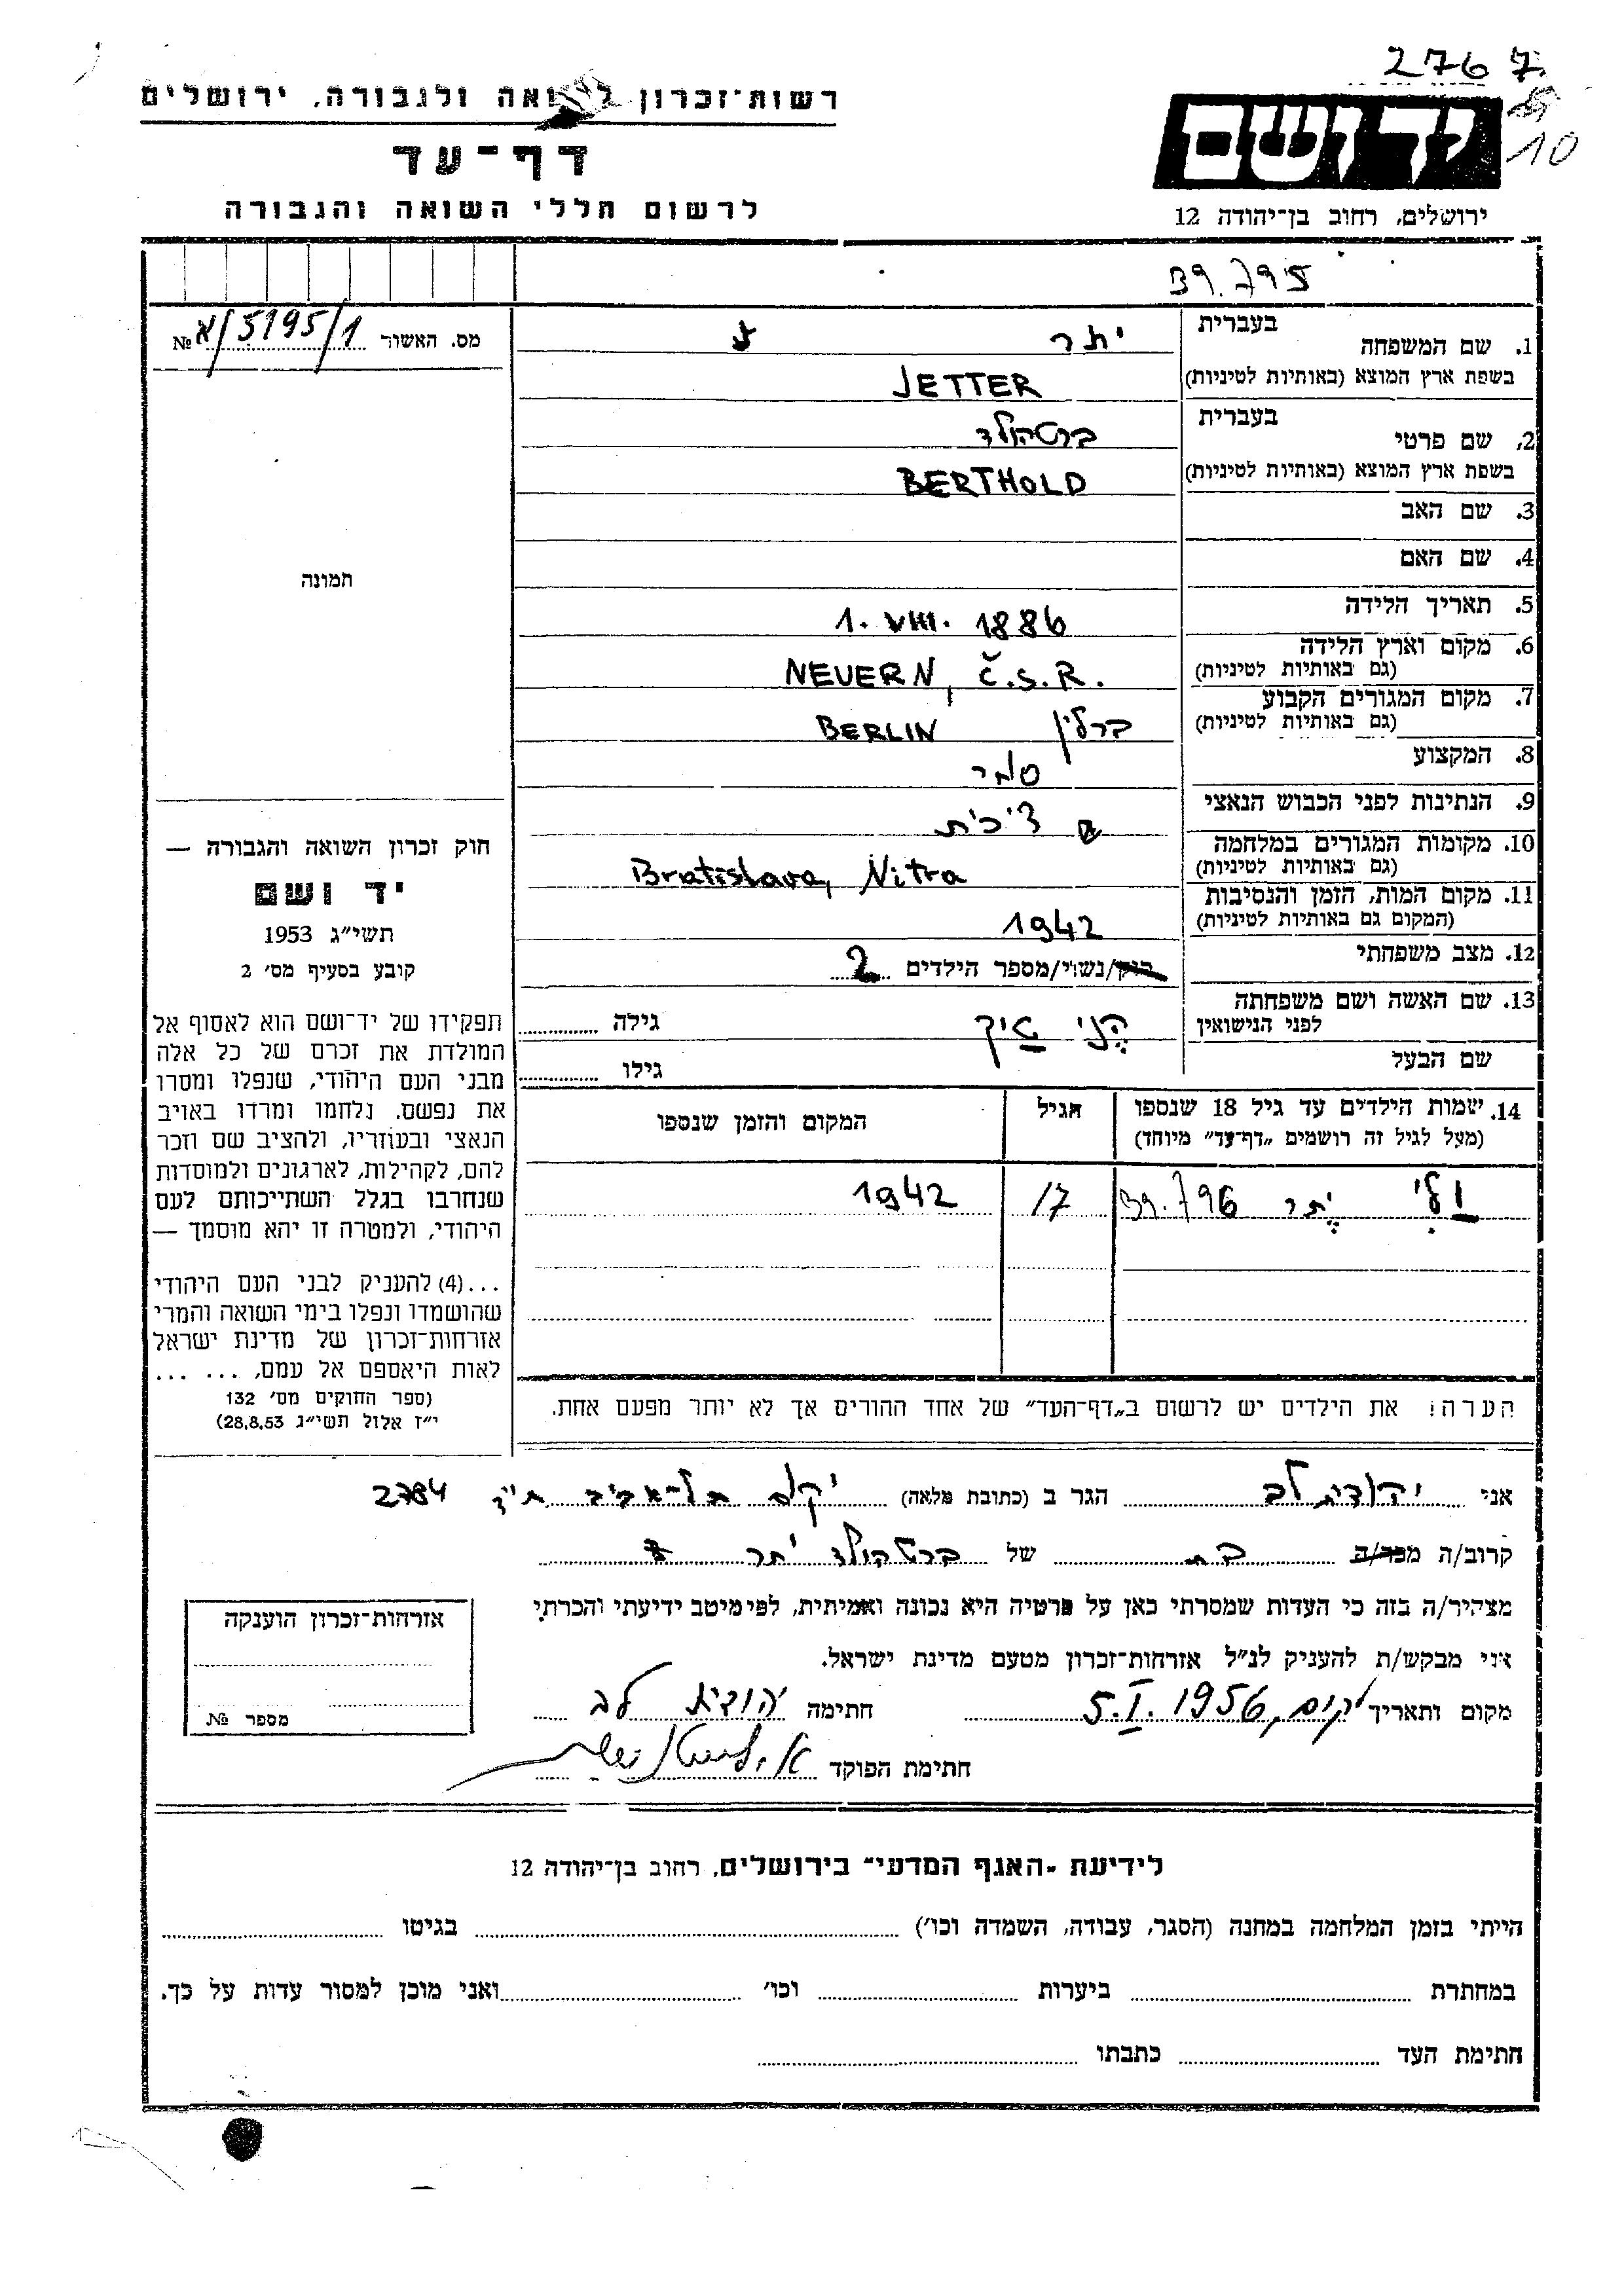 2767
10
רשות־זכרון לשואה ולגבורה, ירושלים
דף־עד
לרשום חללי השואה והגבורה
יד ושם
ירושלים, רחוב בן־יהודה 12
39.795
מס. האשור א/5195/1 №
1. שם המשפחה בעברית יתר
בשפת ארץ המוצא (באותיות לטיניות) JETTER
2. שם פרטי בעברית ברטהולד
בשפת ארץ המוצא (באותיות לטיניות) BERTHOLD
3. שם האב
4. שם האם
תמונה
5. תאריך הלידה 1. VIII. 1886
6. מקום וארץ הלידה (גם באותיות לטיניות) NEUERN, Č.S.R.
7. מקום המגורים הקבוע (גם באותיות לטיניות) ברלין BERLIN
8. המקצוע סוחר
9. הנתינות לפני הכבוש הנאצי צ'כית
10. מקומות המגורים במלחמה (גם באותיות לטיניות) Bratislava, Nitra
11. מקום המות, הזמן והנסיבות (המקום גם באותיות לטיניות) 1942
12. מצב משפחתי רוק/נשוי/מספר הילדים 2
13. שם האשה ושם משפחתה לפני הנישואין הני איק גילה
שם הבעל גילו
14. שמות הילדים עד גיל 18 שנספו (מעל לגיל זה רושמים „דף־עד” מיוחד) הגיל המקום והזמן שנספו
וילי יתר 39.796 17 1942
הערה! את הילדים יש לרשום ב„דף־העד” של אחד ההורים אך לא יותר מפעם אחת.
חוק זכרון השואה והגבורה —
יד ושם
תשי״ג 1953
קובע בסעיף מס׳ 2
תפקידו של יד־ושם הוא לאסוף אל
המולדת את זכרם של כל אלה
מבני העם היהודי, שנפלו ומסרו
את נפשם. נלחמו ומרדו באויב
הנאצי ובעוזריו, ולהציב שם וזכר
להם, לקהילות, לארגונים ולמוסדות
שנחרבו בגלל השתייכותם לעם
היהודי, ולמטרה זו יהא מוסמך —
...(4) להעניק לבני העם היהודי
שהושמדו ונפלו בימי השואה והמרי
אזרחות־זכרון של מדינת ישראל
לאות היאספם אל עמם, ... ...
(ספר החוקים מס׳ 132
י״ז אלול תשי״ג 28.8.53)
אני יהודית לב הגר ב (כתובת מלאה) יקום תל־אביב ת״ד 2784
קרוב/ה מכר/ה בת של ברטהולד יתר
מצהיר/ה בזה כי העדות שמסרתי כאן על פרטיה היא נכונה ואמיתית, לפי מיטב ידיעתי והכרתי
אני מבקש/ת להעניק לנ״ל אזרחות־זכרון מטעם מדינת ישראל.
מקום ותאריך יקום, 5.I.1956 חתימה יהודית לב
חתימת הפוקד
אזרחות־זכרון הוענקה
מספר №
לידיעת „האגף המדעי” בירושלים, רחוב בן־יהודה 12
הייתי בזמן המלחמה במחנה (הסגר, עבודה, השמדה וכו׳) בגיטו
במחתרת ביערות וכו׳ ואני מוכן למסור עדות על כך.
חתימת העד כתבתו